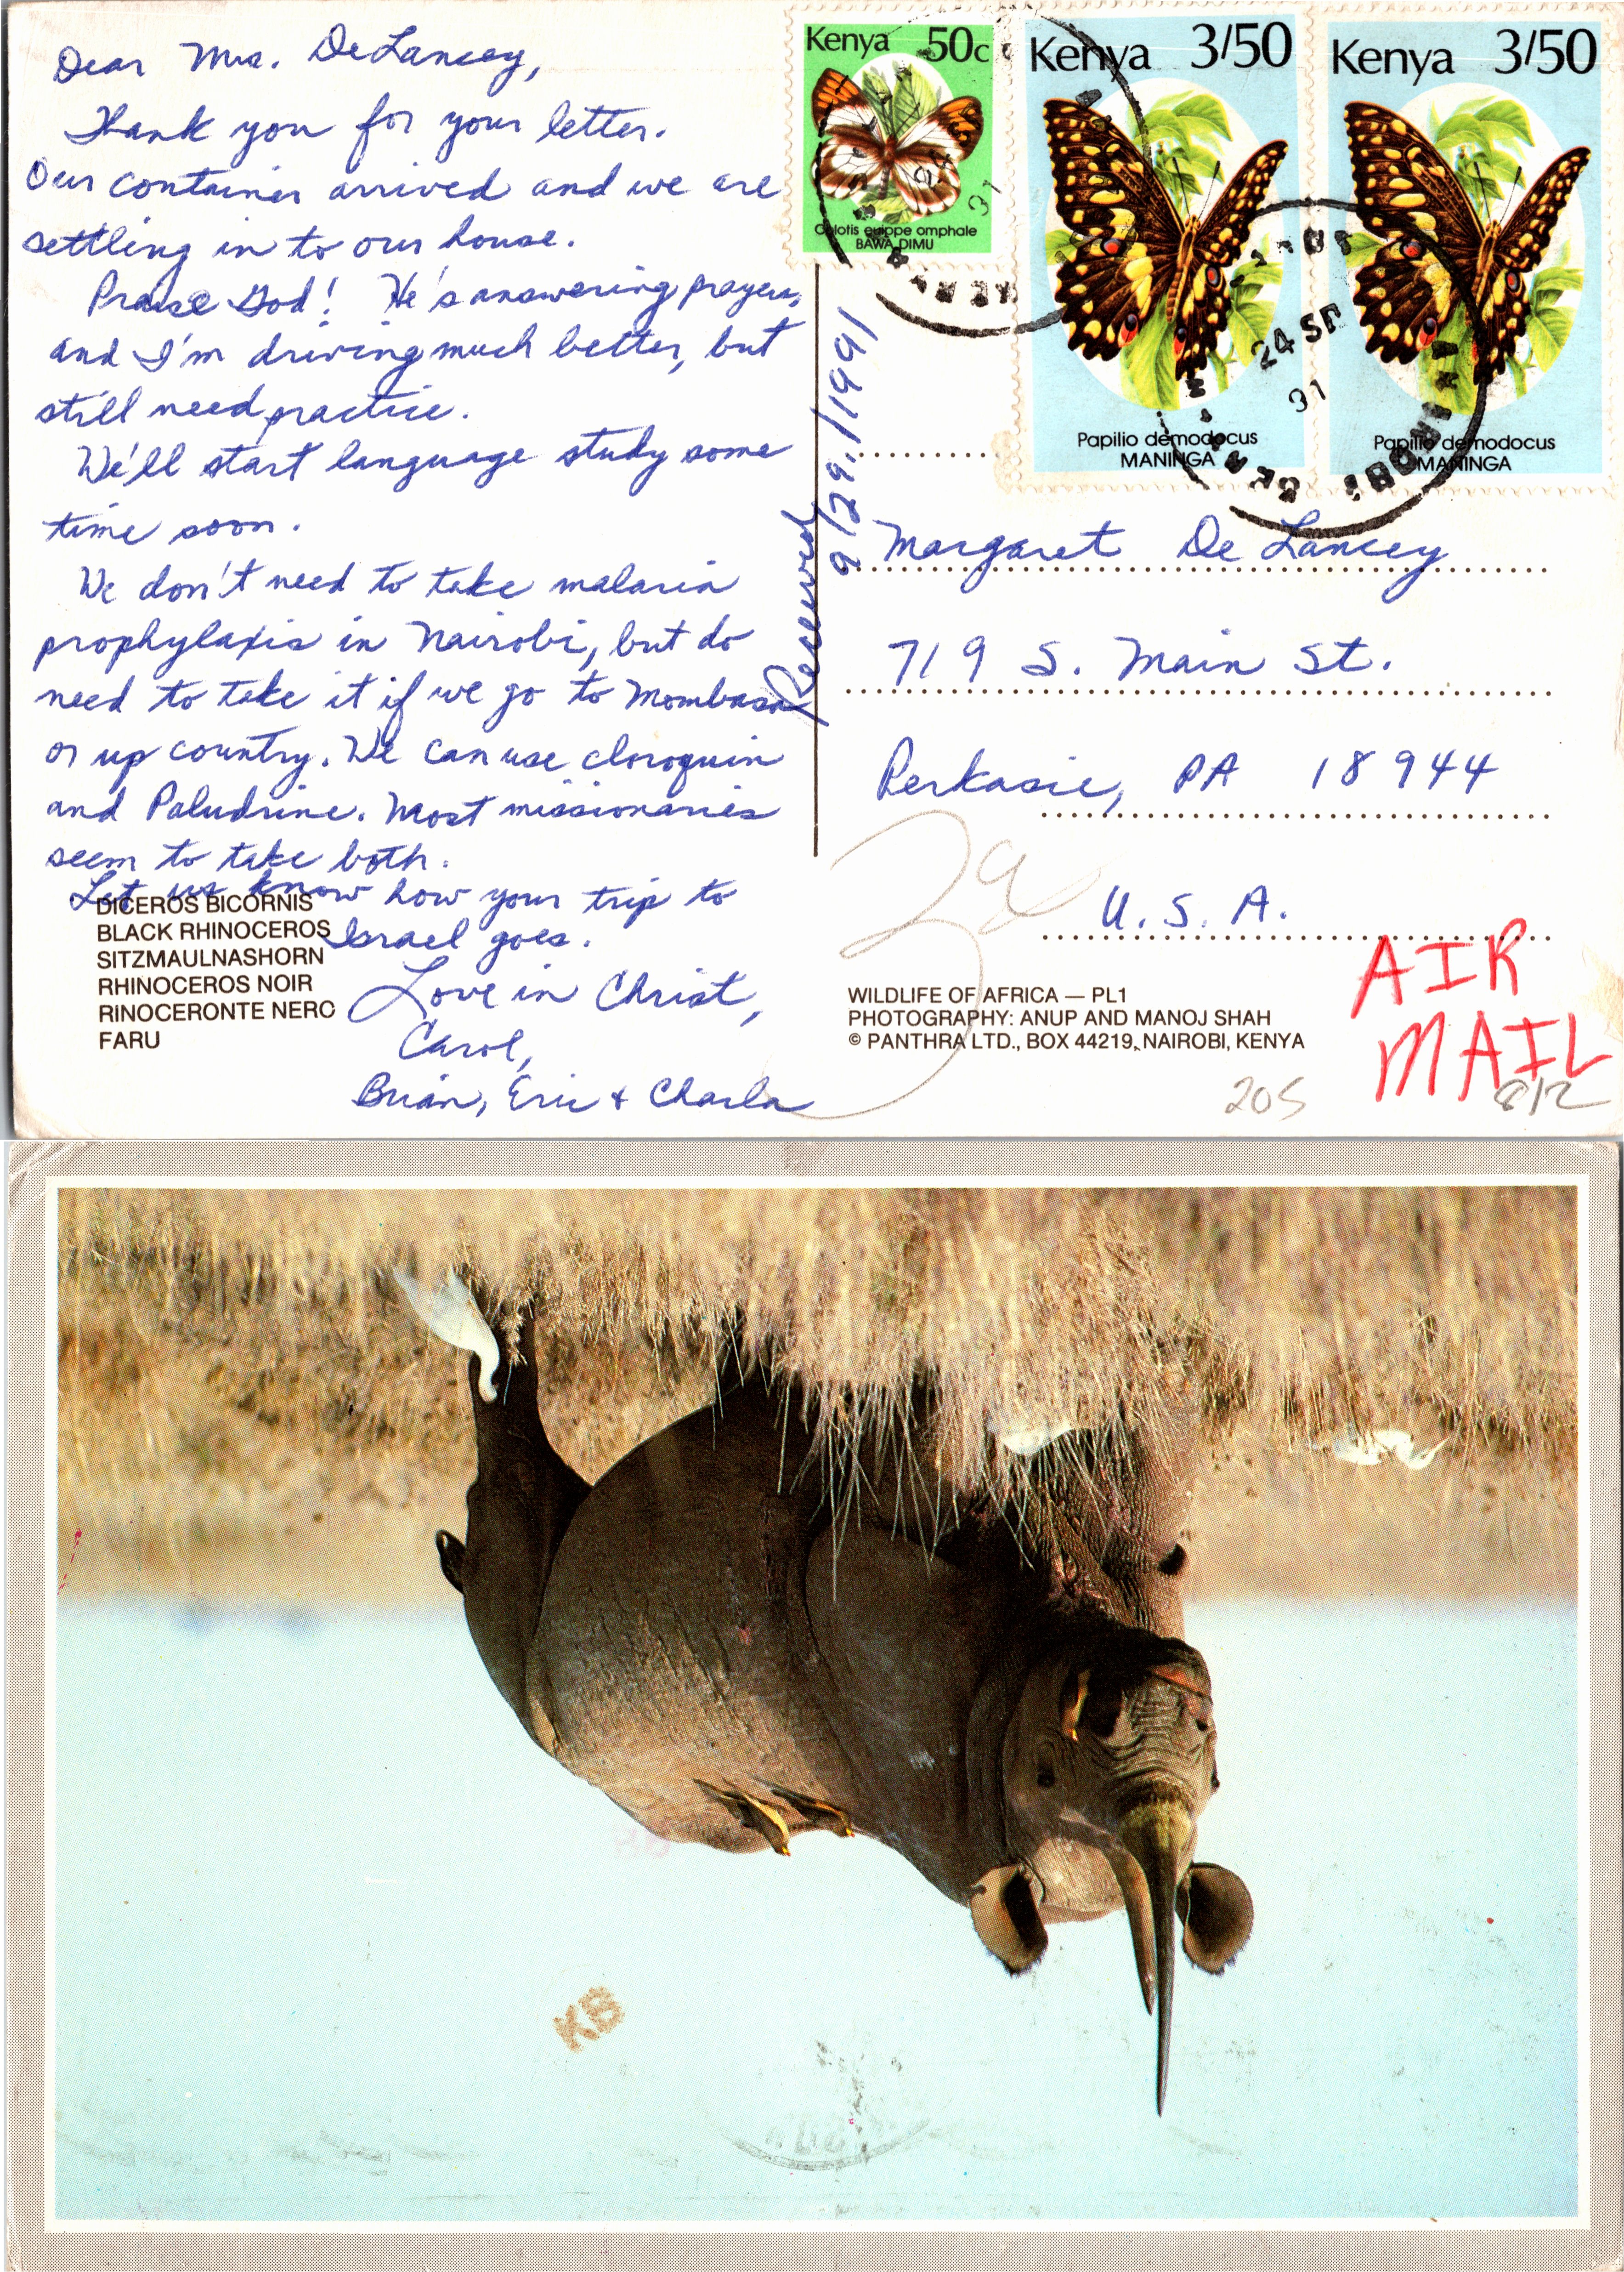 Dear Mrs. DeLancey,
Thank you for your letter.
Our container arrived and we are
settling in to our house.
Praise God! He's answering prayers,
and I'm driving much better, but
still need practice.
We'll start language study some
time soon.
We don't need to take malaria
prophylaxis in Nairobi, but do
need to take it if we go to Mombasa
or up country. We can use cloroquin
and Paludrine. Most missionaries
seem to take both.
Let us know how your trip to
Israel goes.
Love in Christ,
Carol,
Brian, Eric & Charla
DICEROS BICORNIS
BLACK RHINOCEROS
SITZMAULNASHORN
RHINOCEROS NOIR
RINOCERONTE NERO
FARU
Received
9/29/1991
Kenya 50c
Colotis euippe omphale
BAWA DIMU
Kenya 3/50
Papilio demodocus
MANINGA
Kenya 3/50
Papilio demodocus
MANINGA
24 SP
91
NAIROBI
KENYA
Margaret De Lancey
719 S. Main St.
Perkasie, PA 18944
U.S.A.
AIR
MAIL
WILDLIFE OF AFRICA — PL1
PHOTOGRAPHY: ANUP AND MANOJ SHAH
© PANTHRA LTD., BOX 44219, NAIROBI, KENYA
205
8/12
KB